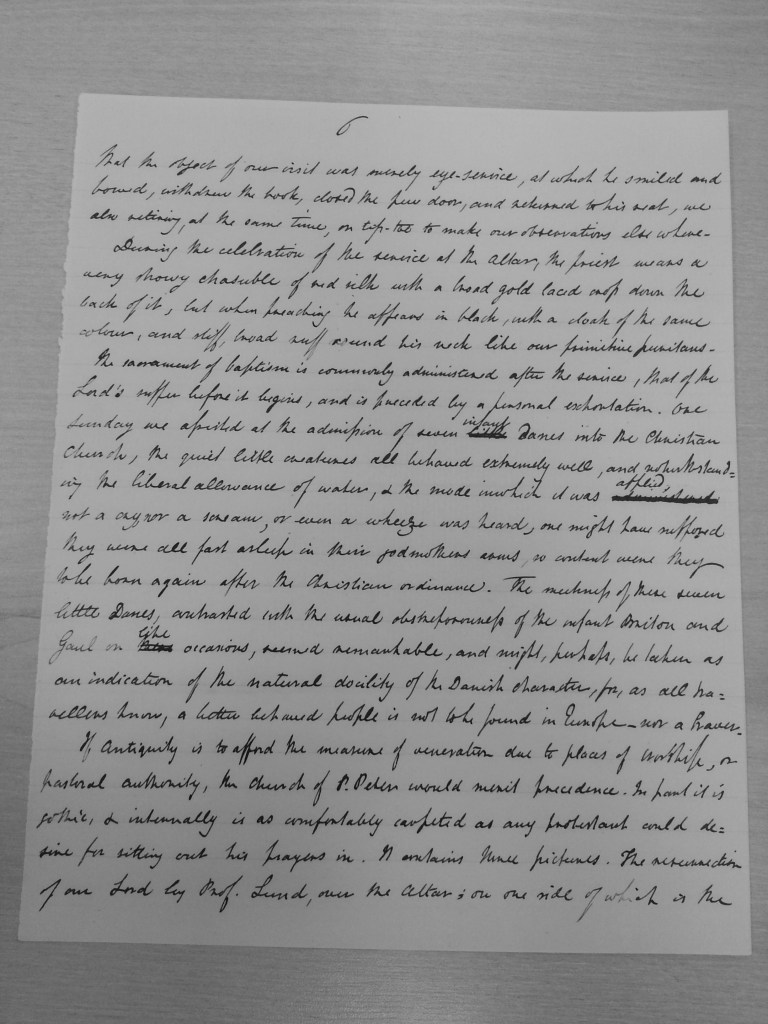 6
that the object of our visit was merely eye-service, at which he smiled and
bowed, withdrew the book, closed the pew door, and returned to his seat, we
also retiring, at the same time, on tip-toe to make our observations elsewhere-
During the celebration of the service at the Altar, the priest wears a
very showy chasuble of red silk with a broad gold laced crop down the
back of it, but when preaching he appears in black, with a cloak of the same
colour, and stiff, broad ruff round his neck like our primitive puritans-
The sacrament of baptism is commonly administered after the service, that of the
Lord's supper before it begins, and is preceded by a personal exhortation. One
Sunday we assisted at the admission of seven infant Danes into the Christian
Church, the quiet little creatures all behaved extremely well, and notwithstand=
ing the liberal allowance of water, & the mode in which it was applied,
not a cry nor a scream, or even a wheeze was heard, one might have supposed
they were all fast asleep in their godmothers arms, so content were they
to be born again after the Christian ordinance. The meekness of these seven
little Danes, contrasted with the usual obstreperousness of the infant Briton and
Gaul on like occasions, seemed remarkable, and might, perhaps, be taken as
an indication of the natural docility of the Danish character, for, as all tra=
vellers know, a better behaved people is not to be found in Europe - nor a braver-
If Antiquity is to afford the measure of veneration due to places of worship, or
pastoral authority, the Church of St. Peter would merit precedence. In part it is
gothic, & internally is as comfortably carpeted as any protestant could de=
sire for sitting out his prayers in. It contains three pictures. The resurrection
of our Lord by Prof. Lund, over the Altar; on one side of which is the